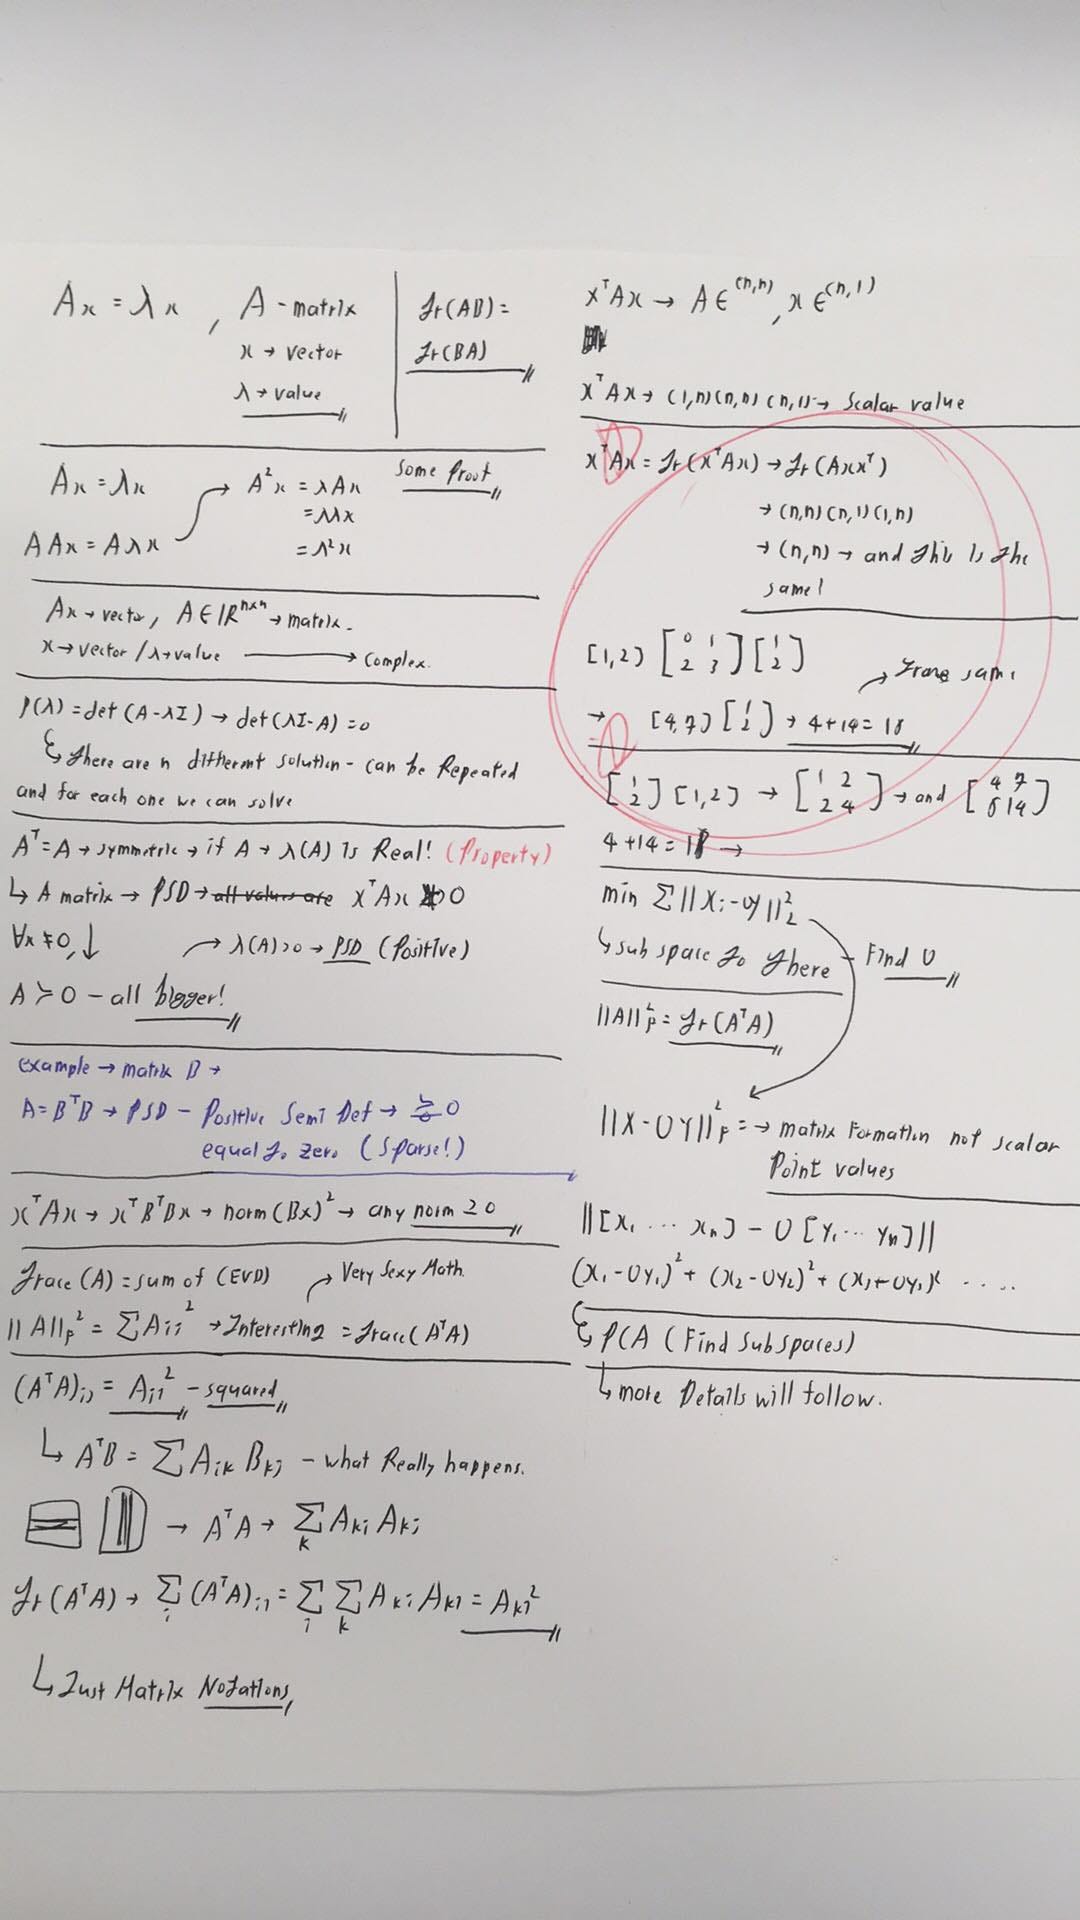 Ax = λx , A - matrix
x → vector
λ → value
Tr(AB) =
Tr(BA)
Ax = λx
AAx = Aλx → A²x = λAx
= λλx
= λ²x
Some Proof
Ax → vector, A ∈ ℝⁿˣⁿ → matrix.
x → vector / λ → value → Complex.
P(λ) = det(A-λI) → det(λI-A) = 0
↳ There are n different solution - can be Repeated
and for each one we can solve
Aᵀ = A → symmetric → if A → λ(A) is Real! (Property)
↳ A matrix → PSD → all values are xᵀAx > 0
∀x ≠ 0, ↓ → λ(A) > 0 → PSD (Positive)
A ≻ 0 - all bigger!
example → matrix B →
A = BᵀB → PSD - Positive Semi Def → ≽ 0
equal to zero (Sparse!)
xᵀAx → xᵀBᵀBx → norm(Bx)² → any norm ≥ 0
Trace(A) = sum of (EVD) → Very Sexy Math.
||A||²F = ΣAij² → Interesting = Trace(AᵀA)
(AᵀA)ij = Aij² - squared
↳ AᵀB = Σ Aik Bkj - what Really happens.
→ AᵀA → Σk Aki Akj
Tr(AᵀA) → Σi (AᵀA)ii = Σi Σk Aki Aki = Aki²
↳ Just Matrix Notations,
xᵀAx → A ∈ (n,n), x ∈ (n,1)
xᵀAx → (1,n)(n,n)(n,1) → Scalar value
xᵀAx = Tr(xᵀAx) → Tr(Axxᵀ)
→ (n,n)(n,1)(1,n)
→ (n,n) → and this is the
same!
[1,2] [0 1; 2 3] [1; 2]
→ Trace same
→ [4,7] [1; 2] → 4+14 = 18
[1; 2] [1,2] → [1 2; 2 4] → and [4 7; 8 14]
4+14 = 18 →
min Σ||Xi - UY||²₂
↳ subspace to there - Find U
||A||²F = Tr(AᵀA)
||X - UY||²F = → matrix Formation not scalar
Point values
||[x₁ ... xn] - U[y₁ ... yn]||
(x₁ - Uy₁)² + (x₂ - Uy₂)² + (x₃ + Uy₃)² .....
↳ PCA (Find Subspaces)
↳ more Details will follow.